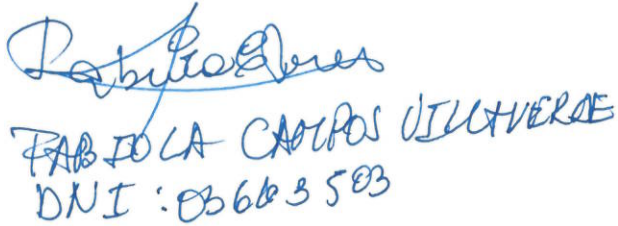 FABIOLA CAMPOS VILLAVERDE
DNI : 03663503